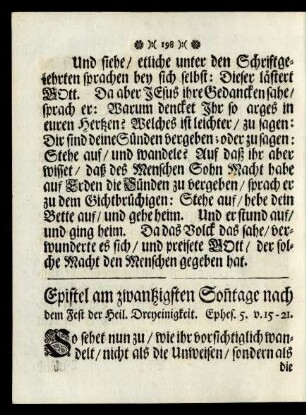 ❀ )( 198 )( ❀
Und siehe/ etliche unter den Schriftge-
lehrten sprachen bey sich selbst: Dieser lästert
GOtt. Da aber JEsus ihre Gedancken sahe/
sprach er: Warum dencket Ihr so arges in
euren Hertzen? Welches ist leichter/ zu sagen:
Dir sind deine Sünden vergeben; oder zu sagen:
Stehe auf/ und wandele? Auf daß ihr aber
wisset/ daß des Menschen Sohn Macht habe
auf Erden die Sünden zu vergeben/ sprach er
zu dem Gichtbrüchigen: Stehe auf/ hebe dein
Bette auf/ und gehe heim. Und er stund auf/
und ging heim. Da das Volck das sahe/ ver-
wunderte es sich/ und preisete GOtt/ der sol-
che Macht den Menschen gegeben hat.
Epistel am zwantzigsten Soñtage nach
dem Fest der Heil. Dreyeinigkeit. Ephes. 5. v. 15-21.
So sehet nun zu/ wie ihr vorsichtiglich wan-
delt/ nicht als die Unweisen/ sondern als
die